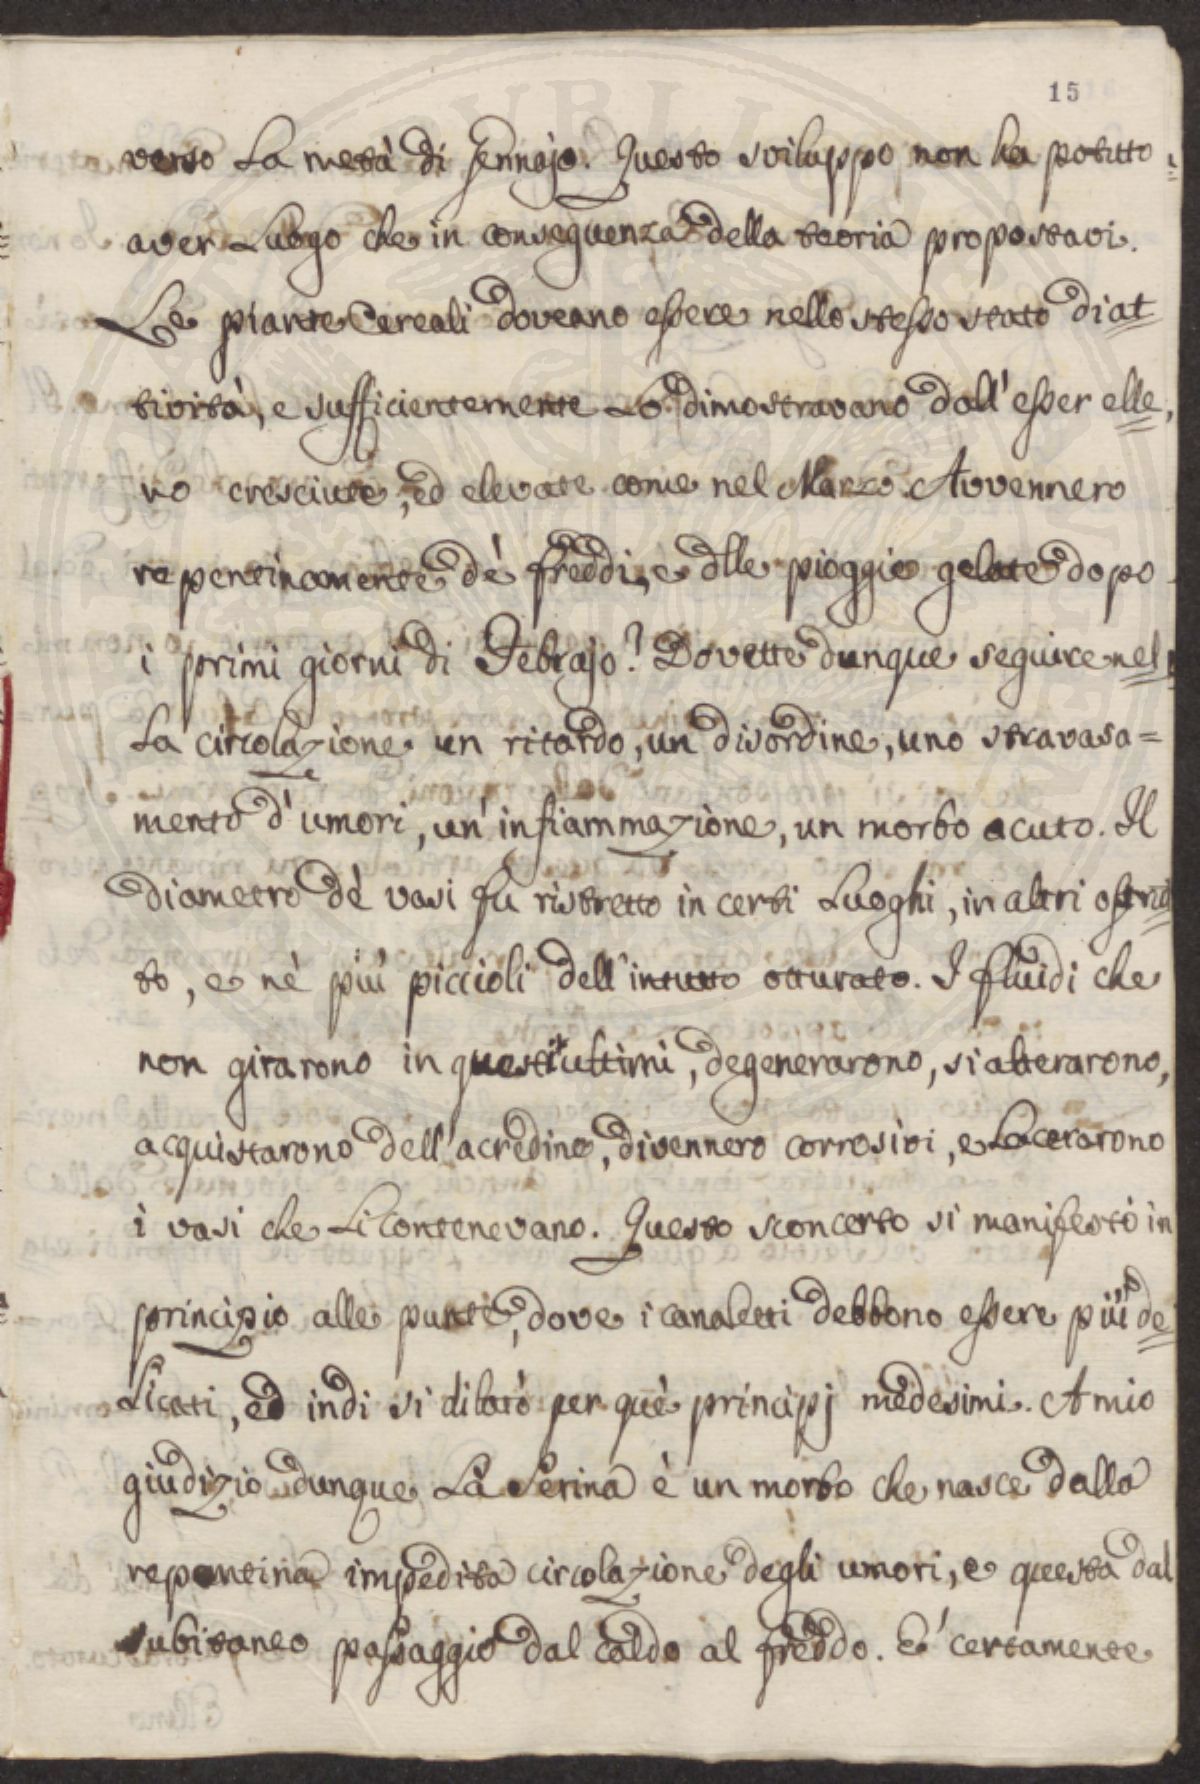 15
verso La metà di Jennajo. Questo sviluppo non ha potuto
aver Luogo che in conseguenza della teoria propostavi.
Le piante Cereali doveano essere nello stesso stato di at=
tività, e sufficientemente Lo dimostravano dall'esser elle,
no cresciute, ed elevate come nel Marzo. Avvennero
repentinamente dè freddi, e dlle pioggie gelate dopo
i primi giorni di Febrajo? Dovette dunque seguire nel=
La circolazione un ritardo, un disordine, uno stravasa=
mento d'umori, un'infiammazione, un morbo acuto. Il
diametro dè vasi fù ristretto in certi Luoghi, in altri ostrut=
to, e nè più piccioli dell'intutto otturato. I fluidi che
non girarono in questi ultimi, degenerarono, si alterarono,
acquistarono dell'acredine, divennero corrosivi, e Lacerarono
i vasi che Li contenevano. Questo sconcerto si manifestò in
principio alle punte, dove i canaletti debbono essere più de=
Licati, ed indi si dilatò per què principj medesimi. A mio
giudizio dunque La Serina è un morbo che nasce dalla
repentina impedita circolazione degli umori, e questa dal
subitaneo passaggio dal caldo al freddo. E' certamente